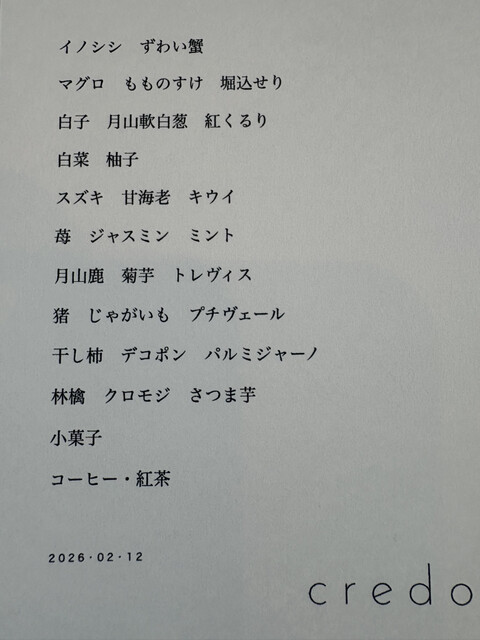 イノシシ　ずわい蟹
マグロ　もものすけ　堀込せり
白子　月山軟白葱　紅くるり
白菜　柚子
スズキ　甘海老　キウイ
苺　ジャスミン　ミント
月山鹿　菊芋　トレヴィス
猪　じゃがいも　プチヴェール
干し柿　デコポン　パルミジャーノ
林檎　クロモジ　さつま芋
小菓子
コーヒー・紅茶
2026・02・12
credo